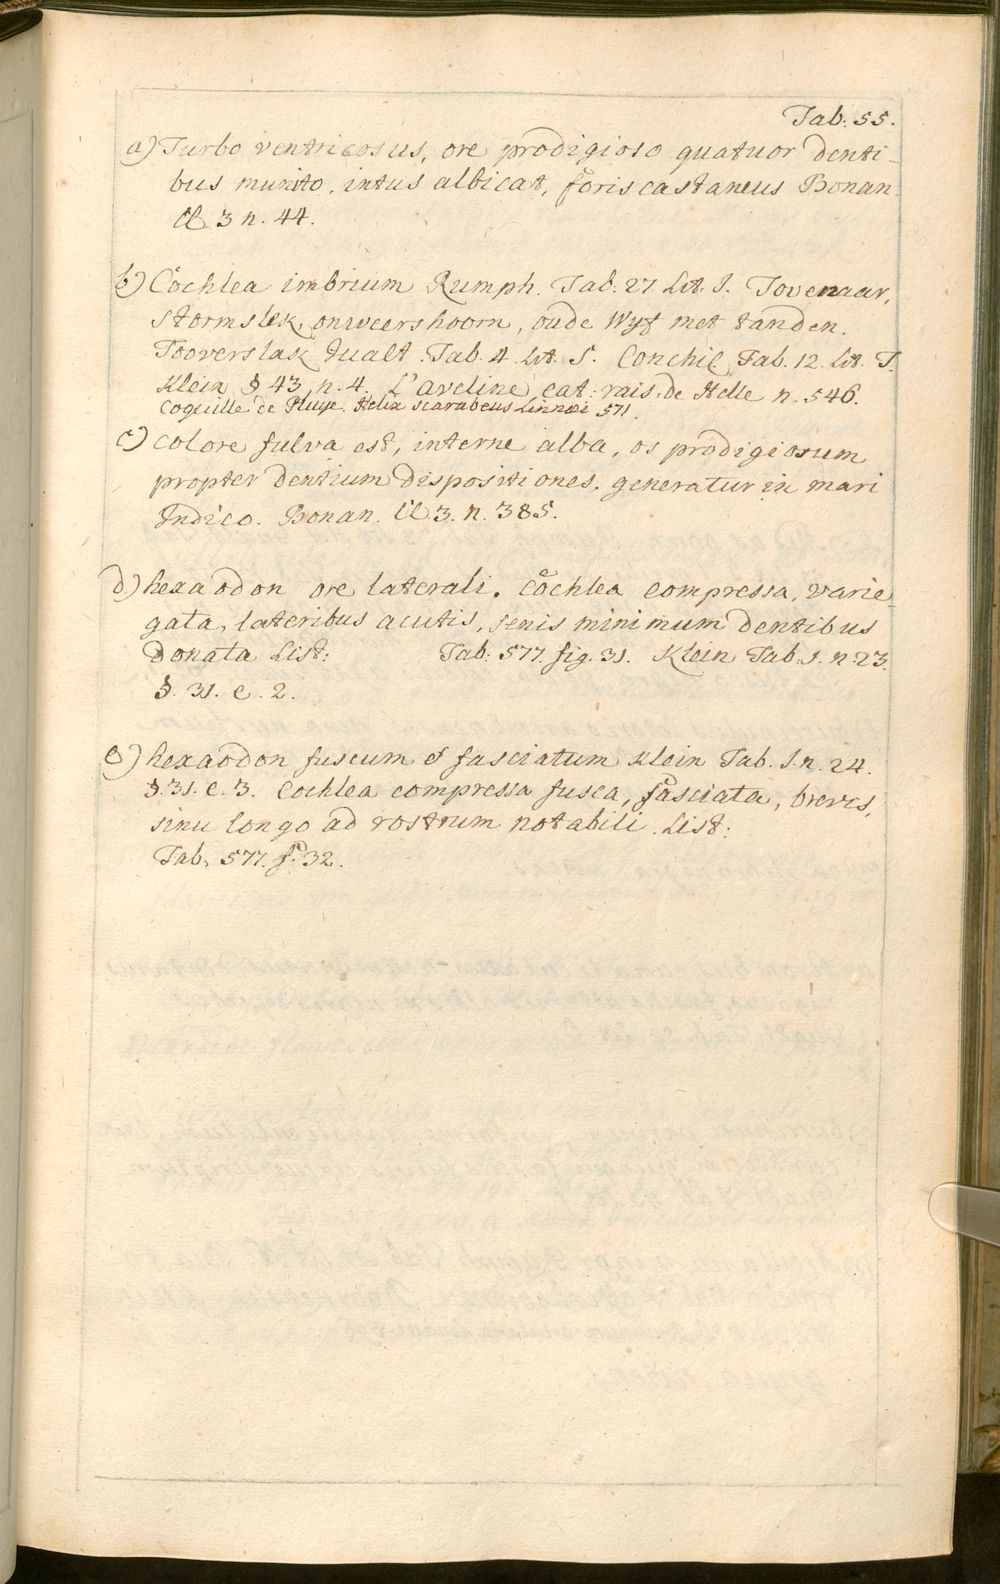 Tab. 55.
a) Turbo ventricosus, ore prodigioso quatuor denti-
bus munito, intus albicat, foris castaneus Bonan.
Cl. 3 n. 44.
b) Cochlea imbrium Rumph. Tab. 27 Lit. I. Tovenaar,
stormslek, onweershoorn, oude Wyf met tanden.
Tooverslak Gualt. Tab. 4. Lit. S. Conchil. Tab. 12. Lit. T.
Klein § 43. n. 4. L'aveline cat: rais. de Helle n. 546.
Coquille de Pluye. Helix scarabeus Linnæi 571.
c) colore fulva est, interne alba, os prodigiosum
propter dentium dispositiones. generatur in mari
Indico. Bonan. Cl 3. n. 385.
d) hexaodon ore laterali. Cochlea compressa, varie-
gata, lateribus acutis, senis minimum dentibus
donata List: Tab: 577. fig. 31. Klein Tab. 1. n. 23.
§. 31. c. 2.
e) hexaodon fuscum & fasciatum Klein Tab. 1. n. 24.
§. 31. c. 3. Cochlea compressa fusca, fasciata, brevis,
sinu longo ad rostrum notabili. List:
Tab. 577. f. 32.